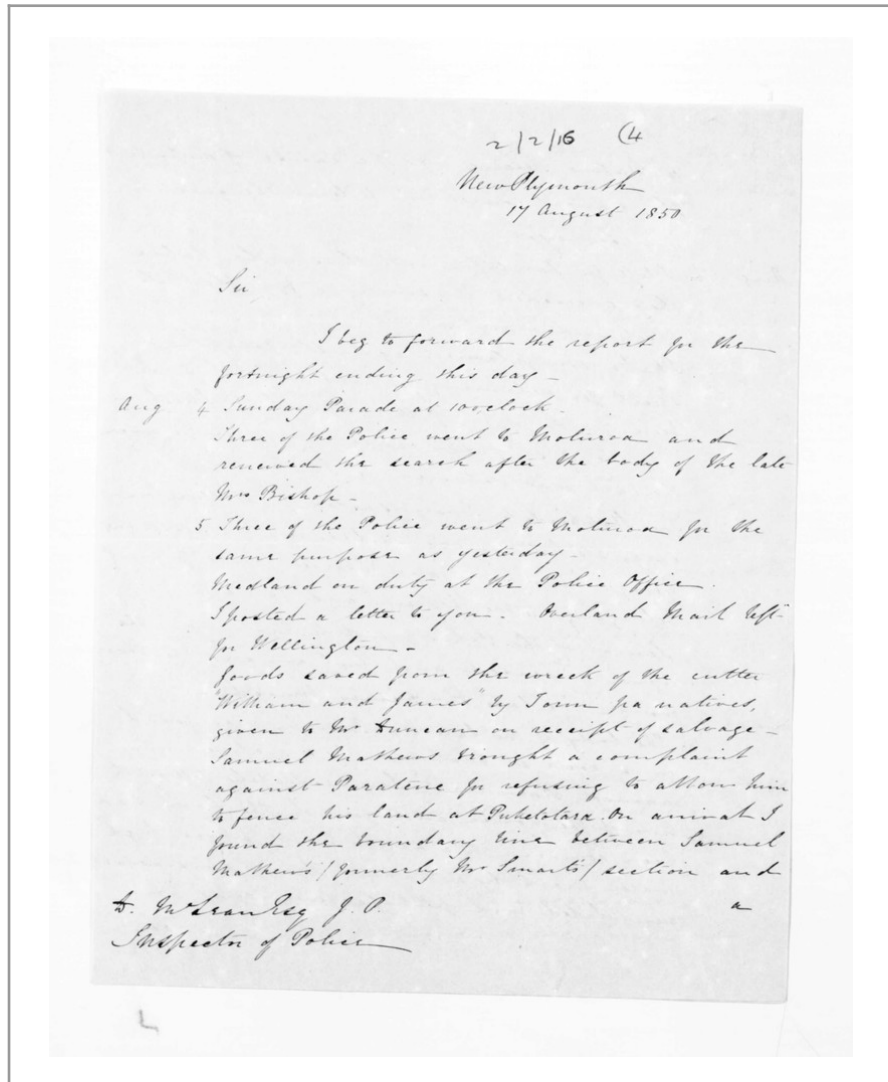 2/2/16 (4
New Plymouth
17 August 1850
Sir
I beg to forward the report for the
fortnight ending this day _
Aug 4. Sunday Parade at 10 o'clock.
Three of the Police went to Moturoa and
renewed the search after the body of the late
Mrs Bishop _
5. Three of the Police went to Moturoa for the
same purpose as yesterday _
Medland on duty at the Police Office.
I posted a letter to you. Overland Mail left
for Wellington _
Goods saved from the wreck of the cutter
"William and James" by Town pa natives,
given to Mr Duncan on receipt of salvage _
Samuel Mathews brought a complaint
against Paratene for refusing to allow him
to fence his land at Pukelotara. On arrival I
found the boundary line between Samuel
Mathews / formerly Mr Smarts / section and
a
D. McLean Esq J. P.
Inspector of Police